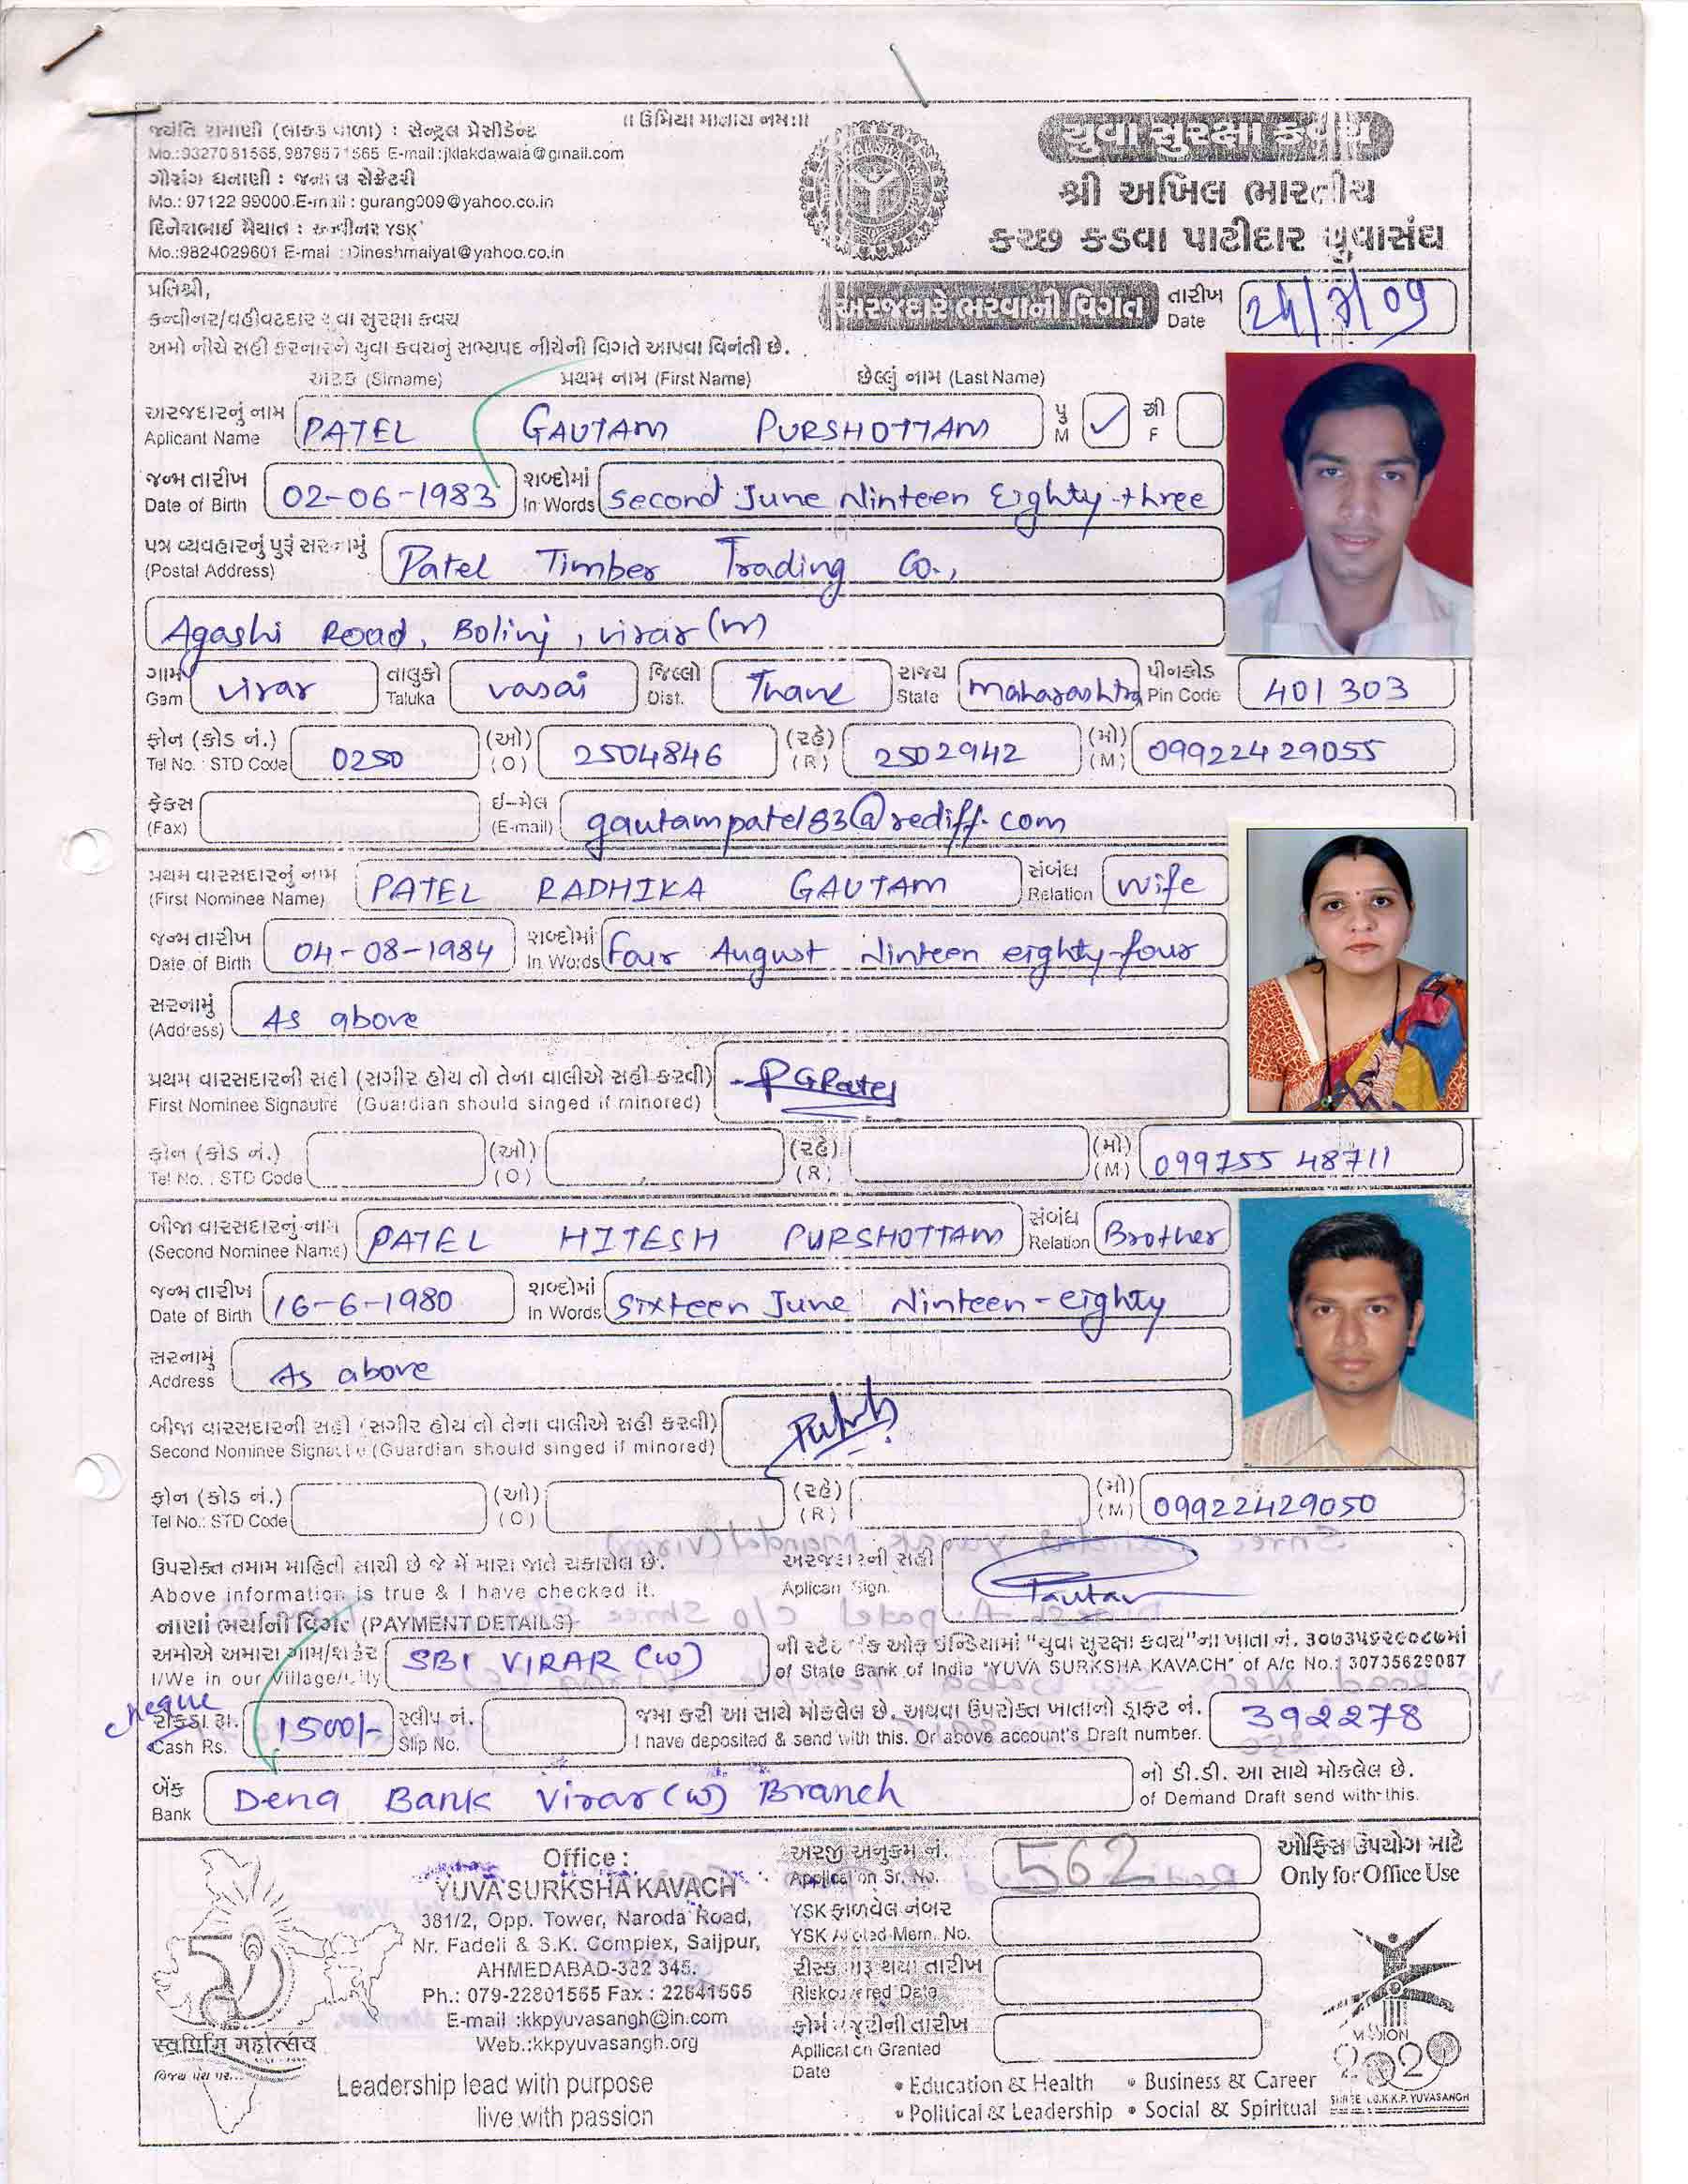 || ઉમિયા માતાય નમઃ ||
જયંતિ રામાણી (લાકડાવાળા) : સેન્ટ્રલ પ્રેસીડેન્ટ
E-mail : jklakdawala@gmail.com
ગૌરાંગ ધનાણી : જનરલ સેક્રેટરી
Mo.: 97122 99000 E-mail : gurang009@yahoo.co.in
દિનેશભાઈ મૈયાત : કન્વીનર YSK
Mo.:9824029601 E-mail : Dineshmaiyat@yahoo.co.in
યુવા સુરક્ષા કવચ
શ્રી અખિલ ભારતીય
કચ્છ કડવા પાટીદાર યુવાસંઘ
પ્રતિશ્રી,
કન્વીનર/વહીવટદાર યુવા સુરક્ષા કવચ
અમો નીચે સહી કરનારને યુવા કવચનું સભ્યપદ નીચેની વિગતે આપવા વિનંતી છે.
અરજદારે ભરવાની વિગત
તારીખ Date /7/09
અટક (Sirname) પ્રથમ નામ (First Name) છેલ્લું નામ (Last Name)
અરજદારનું નામ Aplicant Name PATEL GAUTAM PURSHOTTAM પુ M ✓ સ્ત્રી F
જન્મ તારીખ Date of Birth 02-06-1983 શબ્દોમાં In Words Second June Ninteen Eighty-three
પત્ર વ્યવહારનું પુરૂં સરનામું (Postal Address) Patel Timber Trading Co.,
Agashi Road, Bolinj, virar (w)
ગામ Gam virar તાલુકો Taluka vasai જિલ્લો Dist. Thane રાજ્ય State Maharashtra પીનકોડ Pin Code 401 303
ફોન (કોડ નં.) Tel No. : STD Code 0250 (ઓ) (O) 2504846 (રહે) (R) 2502942 (મો) (M) 09922429055
ફેક્સ (Fax) ઈ-મેલ (E-mail) gautampatel83@rediff.com
પ્રથમ વારસદારનું નામ (First Nominee Name) PATEL RADHIKA GAUTAM સંબંધ Relation Wife
જન્મ તારીખ Date of Birth 04-08-1984 શબ્દોમાં In Words Four August Ninteen eighty-four
સરનામું (Address) As above
પ્રથમ વારસદારની સહી (સગીર હોય તો તેના વાલીએ સહી કરવી) RGPatel
First Nominee Signautre (Guardian should singed if minored)
ફોન (કોડ નં.) Tel No. : STD Code (ઓ) (O) (રહે) (R) (મો) (M) 099755 48711
બીજા વારસદારનું નામ (Second Nominee Name) PATEL HITESH PURSHOTTAM સંબંધ Relation Brother
જન્મ તારીખ Date of Birth 16-6-1980 શબ્દોમાં In Words Sixteen June Ninteen-eighty
સરનામું Address As above
બીજા વારસદારની સહી (સગીર હોય તો તેના વાલીએ સહી કરવી)
Second Nominee Signautre (Guardian should singed if minored)
ફોન (કોડ નં.) Tel No.: STD Code (ઓ) (O) (રહે) (R) (મો) (M) 09922429050
ઉપરોક્ત તમામ માહિતી સાચી છે જે મેં મારા જાતે ચકાસેલ છે. અરજદારની સહી
Above information is true & I have checked it. Aplicant Sign.
નાણાં ભર્યાની વિગત (PAYMENT DETAILS)
અમોએ અમારા ગામ/શહેર SBI VIRAR (W) ની સ્ટેટ બેંક ઓફ ઈન્ડિયામાં "યુવા સુરક્ષા કવચ"ના ખાતા નં. ૩૦૭૩૫૬૨૯૦૮૭માં
I/We in our Village/City of State Bank of India "YUVA SURKSHA KAVACH" of A/c No.: 30735629087
cheque
રોકડા રૂા. Cash Rs. 1500/- સ્લીપ નં. Slip No. જમા કરી આ સાથે મોકલેલ છે. અથવા ઉપરોક્ત ખાતાનો ડ્રાફ્ટ નં. 392278
I have deposited & send with this. Or above account's Draft number.
બેંક Bank Dena Bank Virar (W) Branch નો ડી.ડી. આ સાથે મોકલેલ છે.
of Demand Draft send with this.
સ્વર્ણિમ महोत्सव
Office :
YUVA SURKSHA KAVACH
381/2, Opp. Tower, Naroda Road,
Nr. Fadeli & S.K. Complex, Saijpur,
AHMEDABAD-382 345.
Ph.: 079-22801565 Fax : 22841565
E-mail :kkpyuvasangh@in.com
Web.:kkpyuvasangh.org
Leadership lead with purpose
live with passion
અરજી અનુક્રમ નં. Application Sr. No. 562
YSK ફાળવેલ નંબર
YSK Alloted Mem. No.
રીસ્ક શરૂ થયા તારીખ
ફોર્મ મંજૂરીની તારીખ
Apllication Granted Date
ઓફિસ ઉપયોગ માટે
Only for Office Use
MISSION
2020
• Education & Health • Business & Career
• Political & Leadership • Social & Spiritual